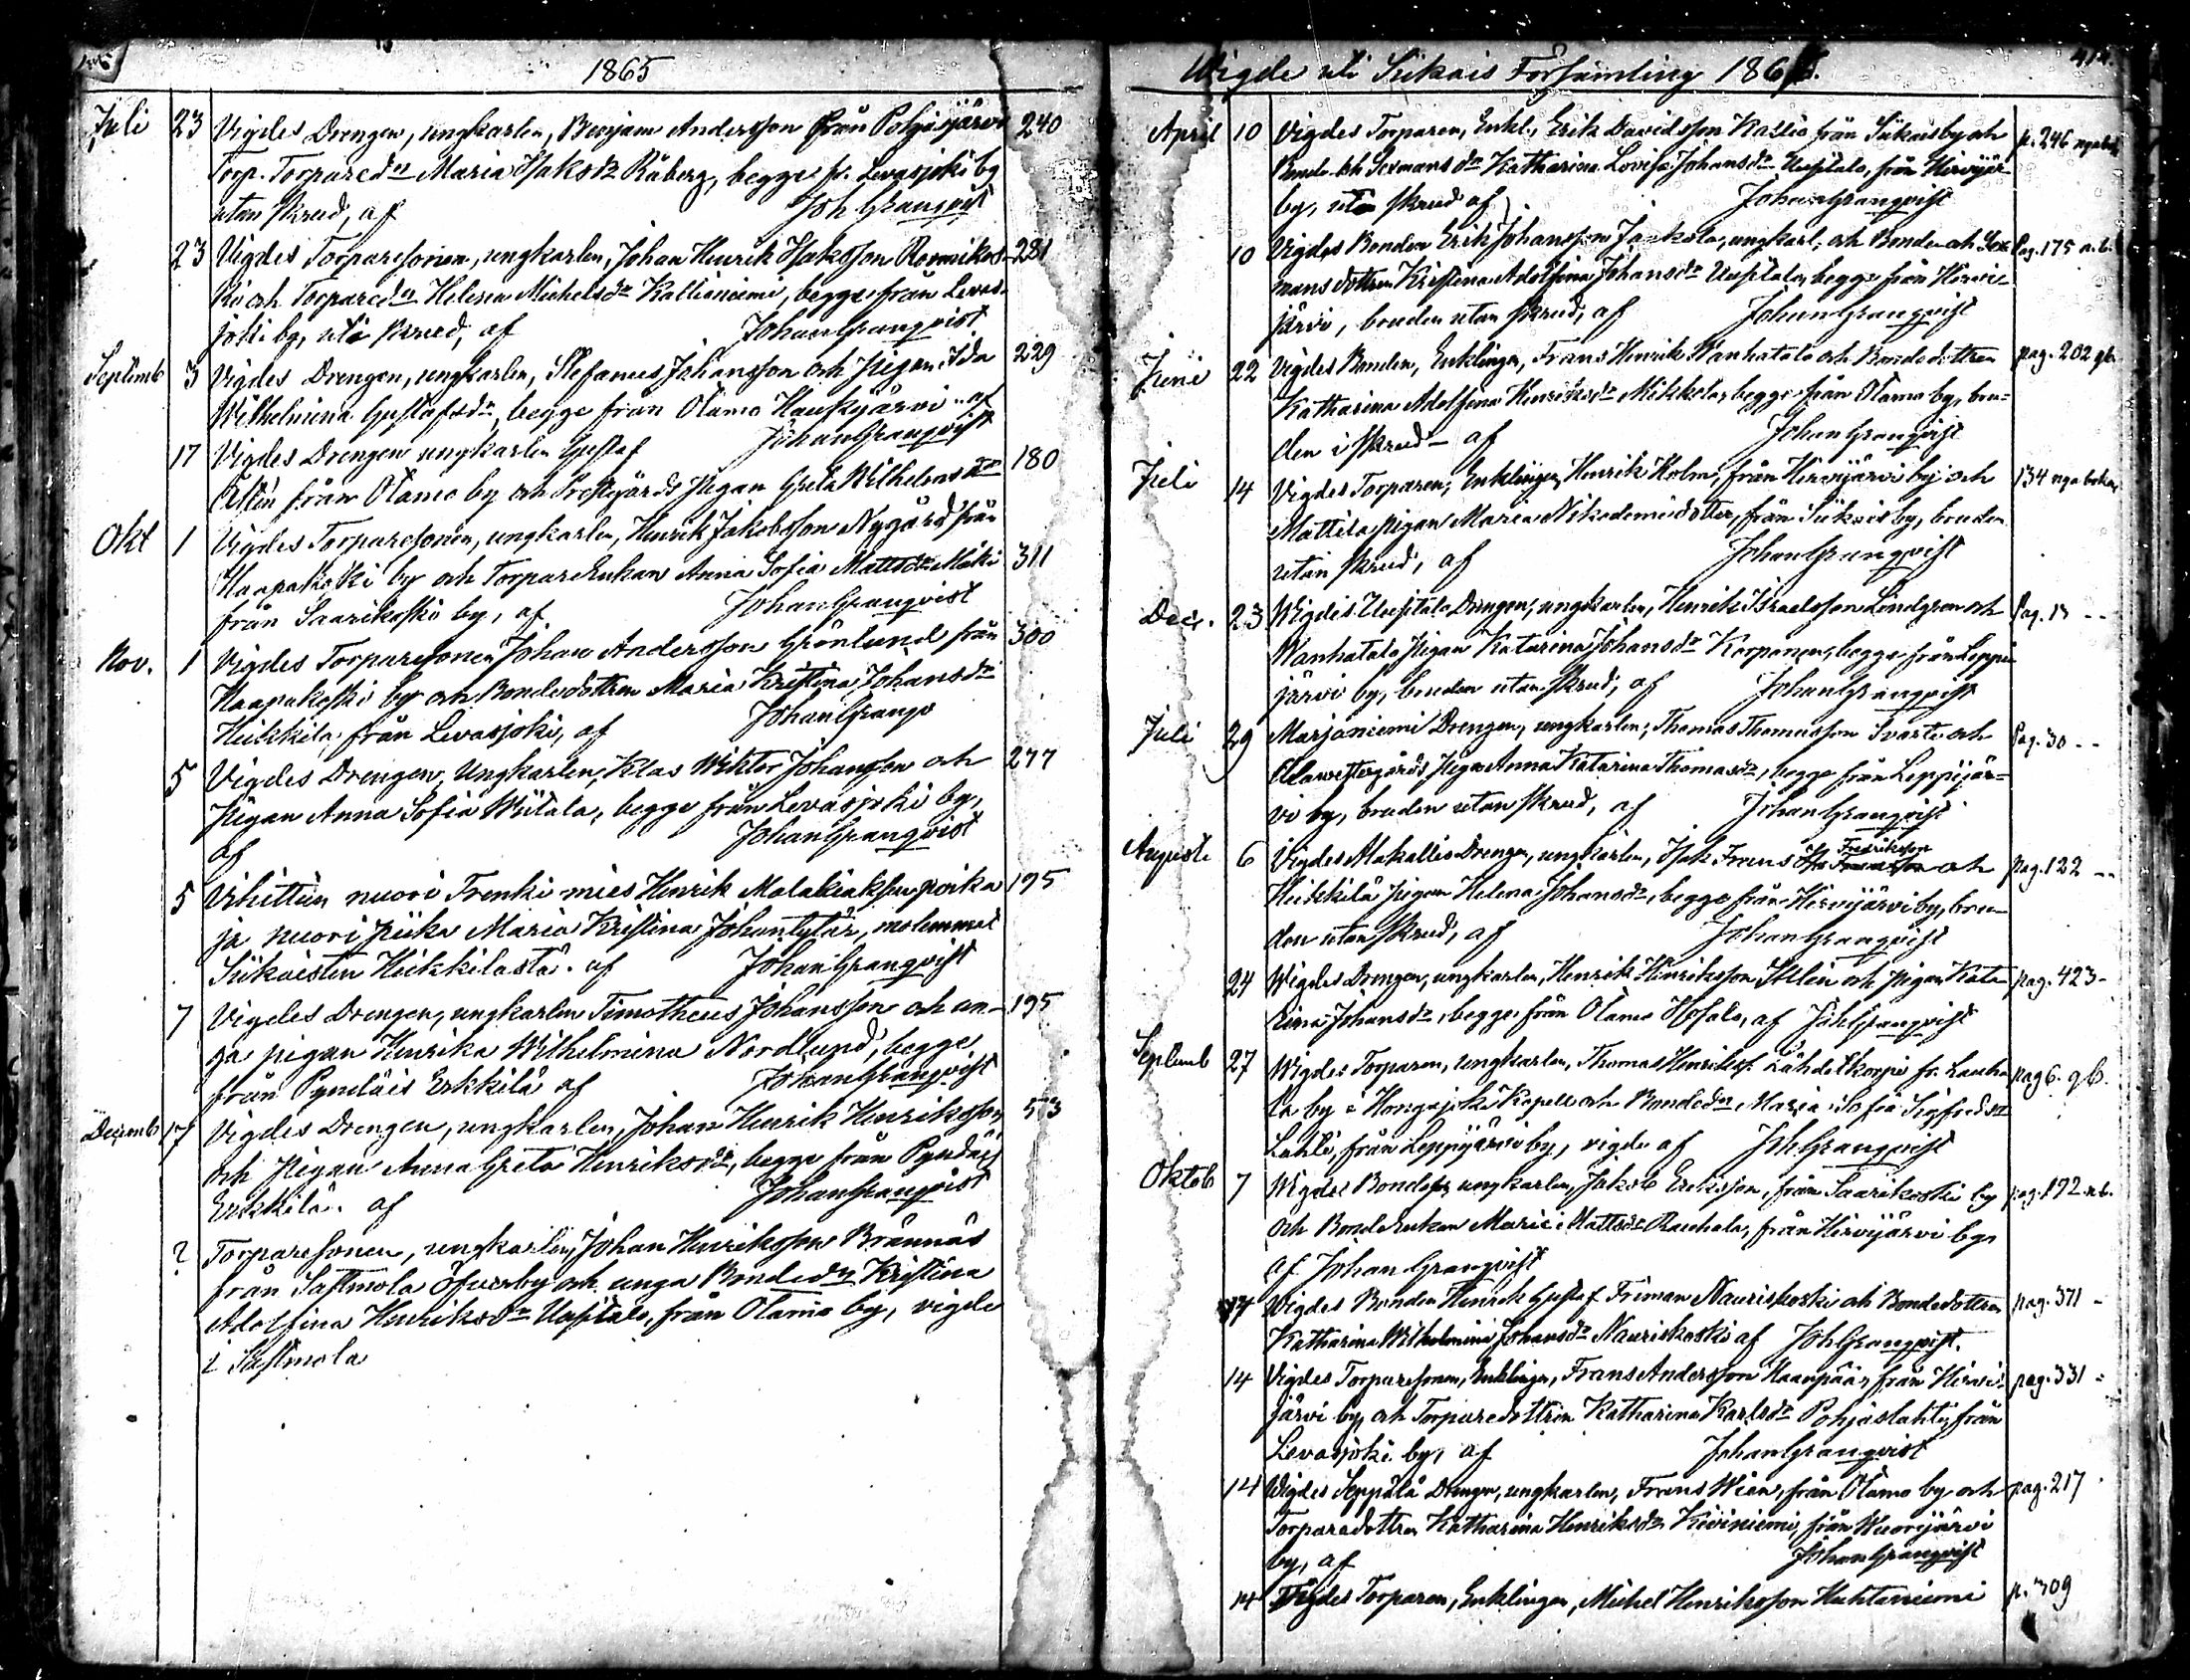 1865
Juli 23 Vigdes Drengen, ungkarlen, Benjam Andersson från Pohjasjärvi 240
Torp. Torpared:n Maria Isaksd:r Råberg, begge fr. Levasjoki by
utan skrud, af Joh Granqvist
23 Vigdes Torparesonen, ungkarlen, Johan Henrik Isaksson 281
och Torpared:n Helena Michelsd:r Kallioniemi, begge från Levas-
joki by, uti skrud, af Johan Granqvist
Septemb 3 Vigdes Drengen, ungkarlen, Stefanus Johansson och pigan Ida 229
Wilhelmina Gustafsd:r, begge från Otamo Haukijärvi af
Johan Granqvist
17 Vigdes Drengen ungkarlen Gustaf 180
från Otamo by och Prestgårds pigan Greta Wilhelmsd:r
Okt 1 Vigdes Torparesonen, ungkarlen, Henrik Jakobsson Nygård från
Haapakoski by och Torpare Enkan Anna Sofia Mattsd:r Mäki 311
från Saarikoski by, af Johan Granqvist
Nov. 1 Vigdes Torparesonen Johan Andersson Grönlund från 300
Haapakoski by och Bondedottren Maria Kristina Johansd:r
Heikkilä, från Levasjoki, af Johan Granqv
5 Vigdes Drengen, Ungkarlen, Klas Wiktor Johansson och 277
Pigan Anna Sofia Wiitala, begge från Levasjoki by,
af Johan Granqvist
5 Vihittiin nuori Trenki mies Henrik Malakiaksen poika 195
ja nuori piika Maria Kristina Johantytär, molemmat
Siikaisten Heikkilästä. af Johan Granqvist
7 Vigdes Drengen, ungkarlen Timotheus Johansson och un- 195
ga pigan Henrika Wilhelmina Nordlund, begge
från Pyndäis Erkkilä af Johan Granqvist
Decemb 17 Vigdes Drengen, ungkarlen, Johan Henrik Henriksson 573
och Pigan Anna Greta Henriksd:r, begge från Pyndäis
Erkkilä. af Johan Granqvist
? Torparesonen, ungkarlen, Johan Henriksson Brännäs
från Sastmola Öfverby och unga Bonded:n Kristina
Adolfina Henriksd:r Uusitalo, från Otamo by, vigde
i Sastmola
Wigde uti Siikais Församling 1866. 412.
April 10 Vigdes Torparen, Enkl., Erik Davidsson Kallio från Siikais by och p. 246 nya bok
Bonde och Sexmansd:n Katharina Lovisa Johansd:r Uusitalo, från Hirvijär-
by, utan skrud af Johan Granqvist
10 Vigdes Bonden Erik Johansson Jaakola, ungkarl, och Bonde och Sex- Pag. 175 n.b.
mansdottren Kristina Adolfina Johansd:r Uusitalo, begge från Hirvi-
järvi, bruden utan skrud, af Johan Granqvist
Juni 22 Vigdes Bonden, Enklingen, Frans Henrik Wanhatalo och Bondedottren pag. 202 gb
Katharina Adolfina Henriksd:r Mikkola, begge från Otamo by, bru-
den i skrud - af Johan Granqvist
Juli 14 Vigdes Torparen, Enklingen, Henrik Holm, från Hirvijärvi by och 134 nya boken
Mattila pigan Maria Nikodemidotter, från Siikais by, bruden
utan skrud, af Johan Granqvist
Dec. 23 Wigdes Uusitalo Drengen, ungkarlen, Henrik Israelsson Lindgren och Pag. 13 --
Wanhatalo Pigan Katarina Johansd:r Korpanen, begge från Leppi-
järvi by, bruden utan skrud, af Johan Granqvist
Juli 29 Marjaniemi Drengen, ungkarlen, Thomas Thomasson Svart och Pag. 30 --
pigan Anna Katarina Thomasd:r, begge från Leppijär-
vi by, bruden utan skrud, af Johan Granqvist
Fredriksson
Augusti 6 Vigdes Alakallio Drengen, ungkarlen, Isak Frans och pag. 122 --
Heikkilä pigan Helena Johansd:r, begge från Hirvijärvi by, bru-
den utan skrud, af Johan Granqvist
24 Wigdes Drengen, ungkarlen, Henrik Henriksson och pigan Kata- pag. 423 -
rina Johansd:r, begge från Otamo Isotalo, af Joh Granqvist
Septemb 27 Wigdes Torparen, ungkarlen, Thomas Henrikss. Lähdekorpi fr. Lauha- pag 6. gb.
la by i Hongajoki Kapell och Bonded:n Maria Sofia Sigfredsd:r
Lahti, från Leppijärvi by, vigde af Joh Granqvist
Oktob 7 Wigdes Bondes. ungkarlen, Jakob Eriksson, från Saarikoski by pag. 192 n.b.
och Bonde Enkan Maria Mattsd:r Rauhala, från Hirvijärvi by
af Johan Granqvist
14 Wigdes Bonden Henrik Gustaf Friman Nauriskoski och Bondedottren pag. 371 -
Katharina Wilhelmina Johansd:r Nauriskoski af Joh Granqvist.
14 Vigdes Torparesonen, Enklingen, Frans Andersson Haanpää, från Hirvi- pag. 331 -
järvi by, och Torparedottren Katharina Karlsd:r Pohjaslahti, från
Levasjoki by, af Johan Granqvist
14 Wigdes Seppälä Drengen, ungkarlen, Frans Wian, från Otamo by och pag. 217
Torparedottren Katharina Henriksd:r Kiviniemi, från Wuorijärvi
by, af Johan Granqvist
14 Vigdes Torparen, Enklingen, Michel Henriksson Huhtaniemi p. 309